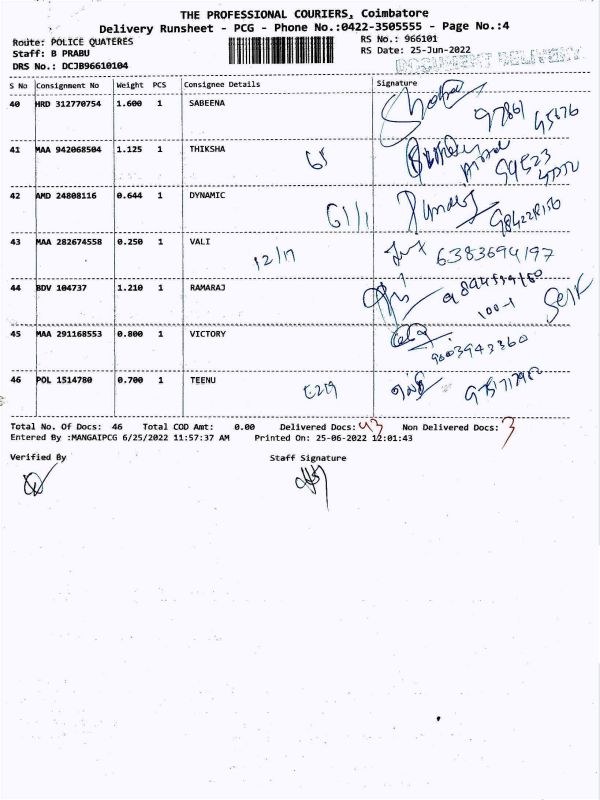 THE PROFESSIONAL COURIERS, Coimbatore
Delivery Runsheet - PCG - Phone No.:0422-3505555 - Page No.:4
Route: POLICE QUATERES RS No.: 966101
Staff: B PRABU RS Date: 25-Jun-2022
DRS No.: DCJB96610104 DOCUMENT DELIVERY
S No Consignment No Weight PCS Consignee Details Signature
40 HRD 312770754 1.600 1 SABEENA 97861 45676
41 MAA 942068504 1.125 1 THIKSHA 94523
42 AMD 24808116 0.644 1 DYNAMIC G1/1
43 MAA 282674558 0.250 1 VALI 12/17 6383694197
44 BDV 104737 1.210 1 RAMARAJ 100-1 Self
45 MAA 291168553 0.800 1 VICTORY 9003943360
46 POL 1514780 0.700 1 TEENU E219
Total No. Of Docs: 46 Total COD Amt: 0.00 Delivered Docs: 43 Non Delivered Docs: 3
Entered By :MANGAIPCG 6/25/2022 11:57:37 AM Printed On: 25-06-2022 12:01:43
Verified By Staff Signature